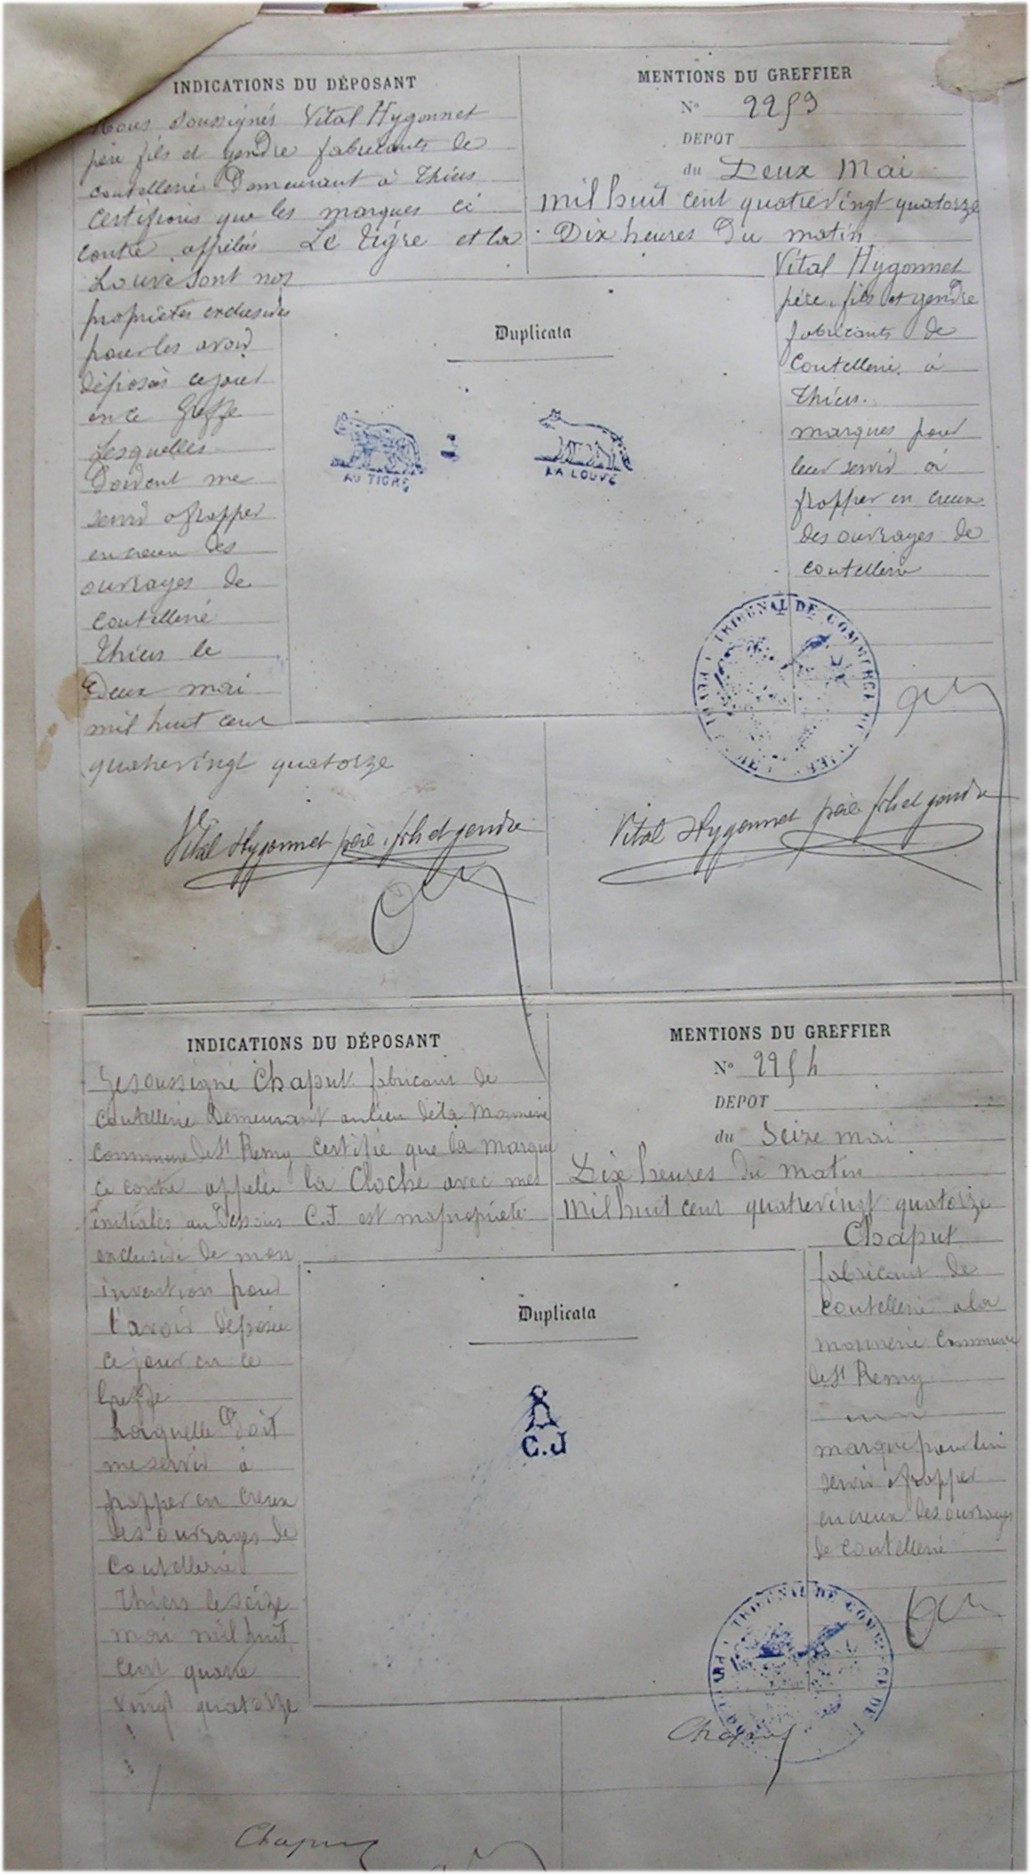 INDICATIONS DU DÉPOSANT
Nous soussignés Vital Hygonnet
père fils et gendre fabricants de
coutellerie Demeurant à Thiers
certifions que les marques ci
contre appelées Le Tigre et la
Louve sont nos
propriétés exclusives
pour les avoir
déposées ce jour
en ce Greffe
Lesquelles
Doivent me
servir a frapper
en creux des
ouvrages de
coutellerie
Thiers le
Deux mai
mil huit cent
quatrevingt quatorze
Vital Hygonnet père, fils et gendre
MENTIONS DU GREFFIER
N° 2253
DEPOT
du Deux Mai
mil huit cent quatrevingt quatorze
Dix heures Du matin
Vital Hygonnet
père, fils et gendre
fabricants de
Coutellerie à
Thiers.
marques pour
leur servir à
frapper en creux
des ouvrages de
coutellerie
Duplicata
AU TIGRE
LA LOUVE
TRIBUNAL DE COMMERCE DE
Vital Hygonnet père fils et gendre
INDICATIONS DU DÉPOSANT
Je soussigné Chaput fabricant de
coutellerie Demeurant au lieu de la Monnerie
Commune de St Remy certifie que la marque
ci contre appelée la Cloche avec mes
initiales au Dessous C.J est ma propriété
exclusive de mon
invention pour
l'avoir déposée
ce jour en ce
Greffe
Laquelle Doit
me servir à
frapper en creux
des ouvrages de
Coutellerie
Thiers le seize
mai mil huit
cent quatre
vingt quatorze
Chaput
MENTIONS DU GREFFIER
N° 2254
DEPOT
du Seize mai
Dix heures du matin
Mil huit cent quatrevingt quatorze
Chaput
fabricant de
coutellerie a la
monnerie Commune
de St Remy
marque pour lui
servir a frapper
en creux des ouvrages
de coutellerie
Duplicata
C.J
TRIBUNAL DE COMMERCE DE
Chaput